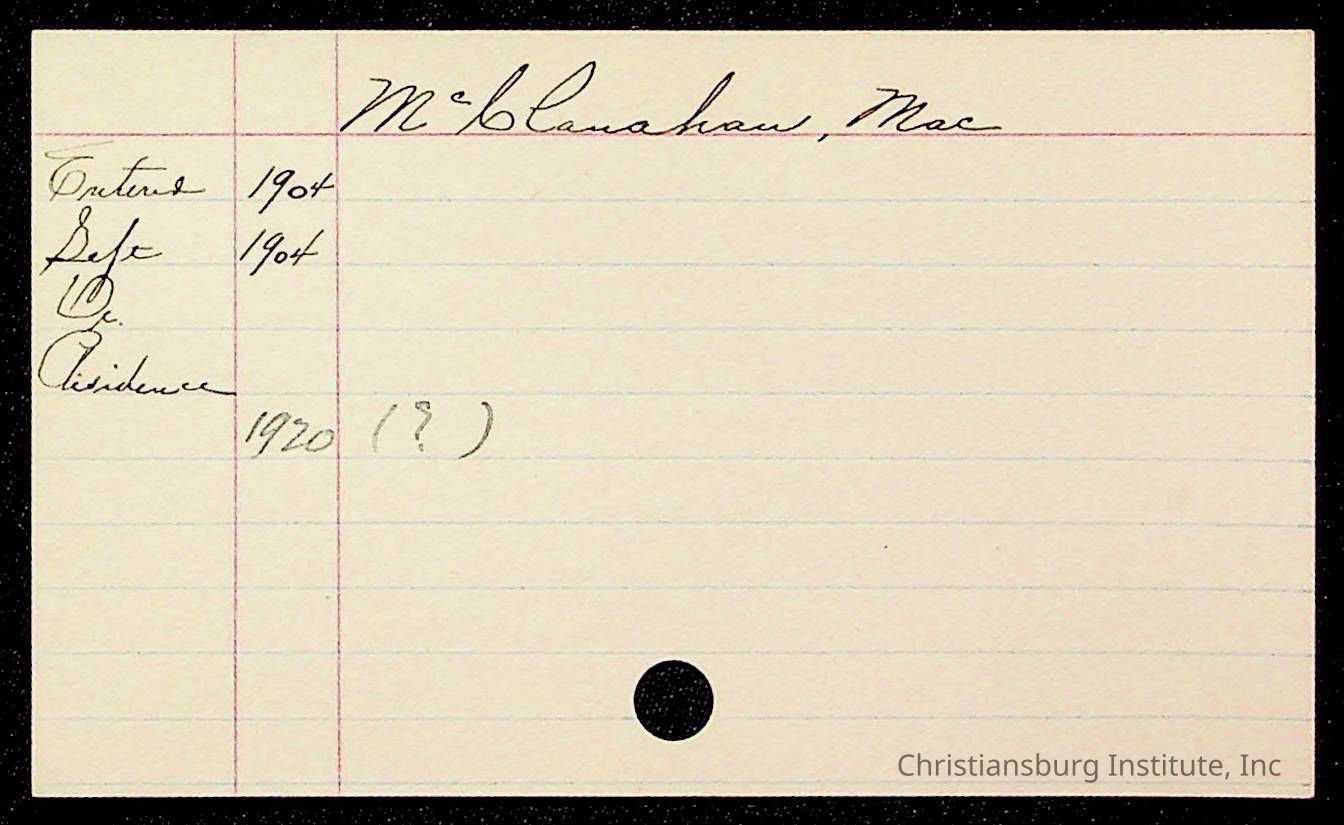 McClanahan, Mac
Entered 1904
Left 1904
Residence
1920 (?)
Christiansburg Institute, Inc